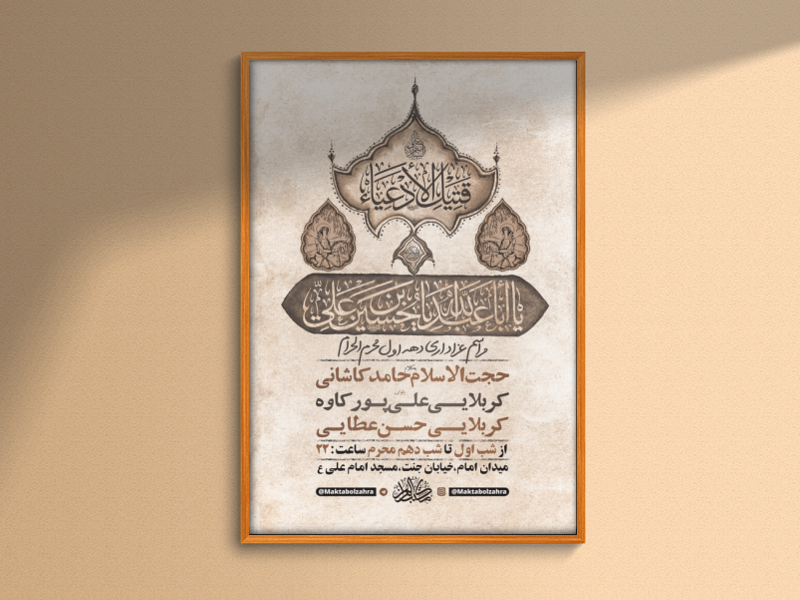 قَتِيلُ الأَدْعِيَاءِ
يا أبا عبدالله يا حسين بن علي
مراسم عزاداری دهه اول محرم الحرام
حجت الاسلام حامد کاشانی
کربلایی علی پور کاوه
کربلایی حسن عطایی
از شب اول تا شب دهم محرم ساعت: ۲۲
میدان امام، خیابان جنت، مسجد امام علی ع
@Maktabolzahra @Maktabolzahra